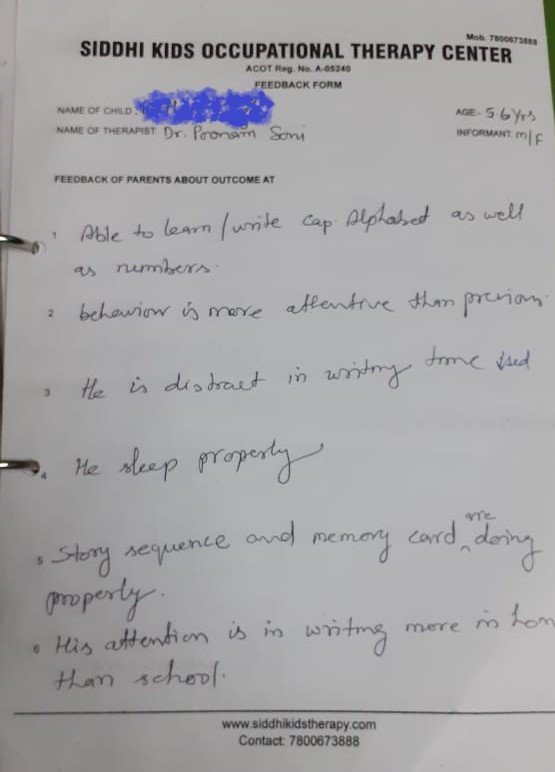 Mob. 7800673888
SIDDHI KIDS OCCUPATIONAL THERAPY CENTER
ACOT Reg. No. A-05240
FEEDBACK FORM
NAME OF CHILD :
AGE- 5 6 Yrs
NAME OF THERAPIST Dr. Poonam Soni
INFORMANT: M/F
FEEDBACK OF PARENTS ABOUT OUTCOME AT
1 Able to learn / write cap. Alphabed as well
as numbers.
2 behaviour is more attentive than previous.
3 He is distract in writing time
4 He sleep properly
5 Story sequence and memory card are doing
properly.
6 His attention is in writing more in hom
than school.
www.siddhikidstherapy.com
Contact: 7800673888